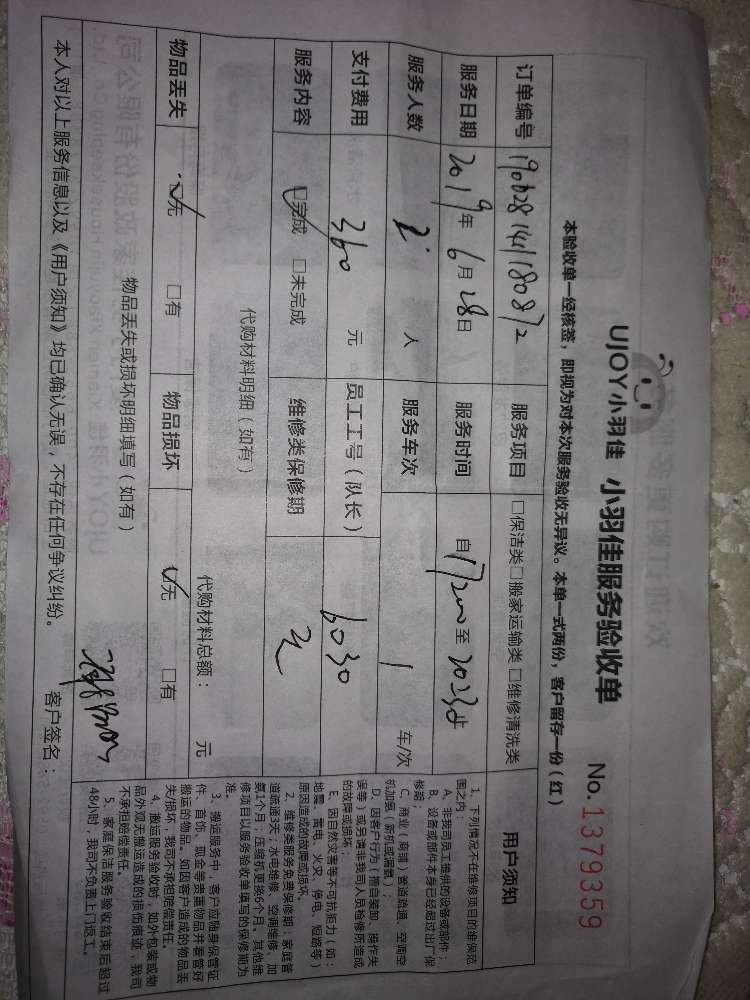 UJOY小羽佳 小羽佳服务验收单 No.1379359
本验收单一经核签，即视为对本次服务验收无异议。本单一式两份，客户留存一份（红）
订单编号 服务项目 □保洁类□搬家运输类□维修清洗类
服务日期 2019年6月28日 服务时间 自 至
服务人数 2 人 服务车次 1 车/次
支付费用 360 元 员工工号（队长） 6030
服务内容 □完成 □未完成 维修类保修期 无
代购材料明细（如有）
代购材料总额： 元
物品丢失 □无 □有 物品损坏 □无 □有
物品丢失或损坏明细填写（如有）
本人对以上服务信息以及《用户须知》均已确认无误，不存在任何争议纠纷。 客户签名：
用户须知
1、下列情况不在维修项目的维保范
围之内：
A、非我司员工提供的设备或部件；
B、设备或部件本身已经超过出厂保
修期；
C、商业（商铺）管道疏通、空调空
机加氨（新机或漏氨）；
D、因客户行为（擅自装卸、操作失
误等）或另请非我司人员检修所造成
的故障或损坏；
E、因自然灾害等不可抗拒力（如：
地震、雷电、火灾、停电、短路等）
原因造成的故障或损坏。
2、维修类服务免费保修期：家庭管
道疏通3天；水电维修、空调维修、加
氨1个月；压缩机更换6个月。其他维
修项目以服务验收单填写的保修期为
准。
3、搬运服务中，客户应随身保管证
件、首饰、现金等贵重物品并看管好
搬运的物品。如因客户造成的物品丢
失/损坏，我司不承担赔偿责任。
4、搬运服务验收时，如外包装或物
品外观无搬运造成的损伤痕迹，我司
不承担赔偿责任。
5、家庭保洁服务验收结束后超过
48小时，我司不负责上门返工。